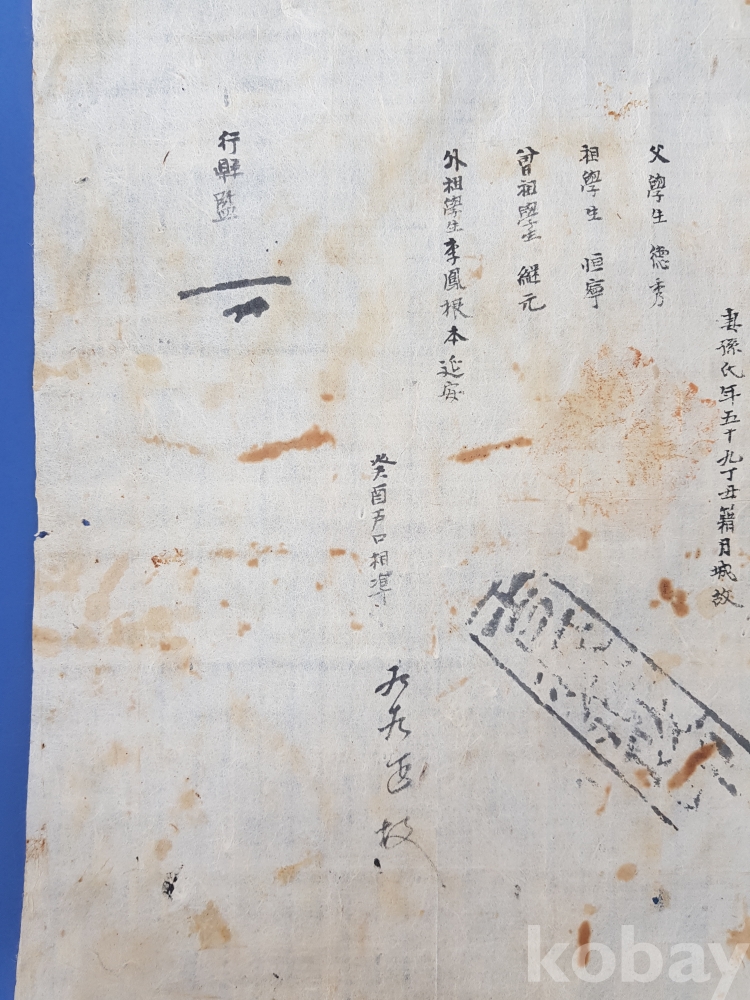 妻孫氏年五十九丁丑籍月城故
父學生德秀
祖學生恒寧
曾祖學生繼元
外祖學生李鳳根本延安
癸酉戶口相準
行縣監
kobay